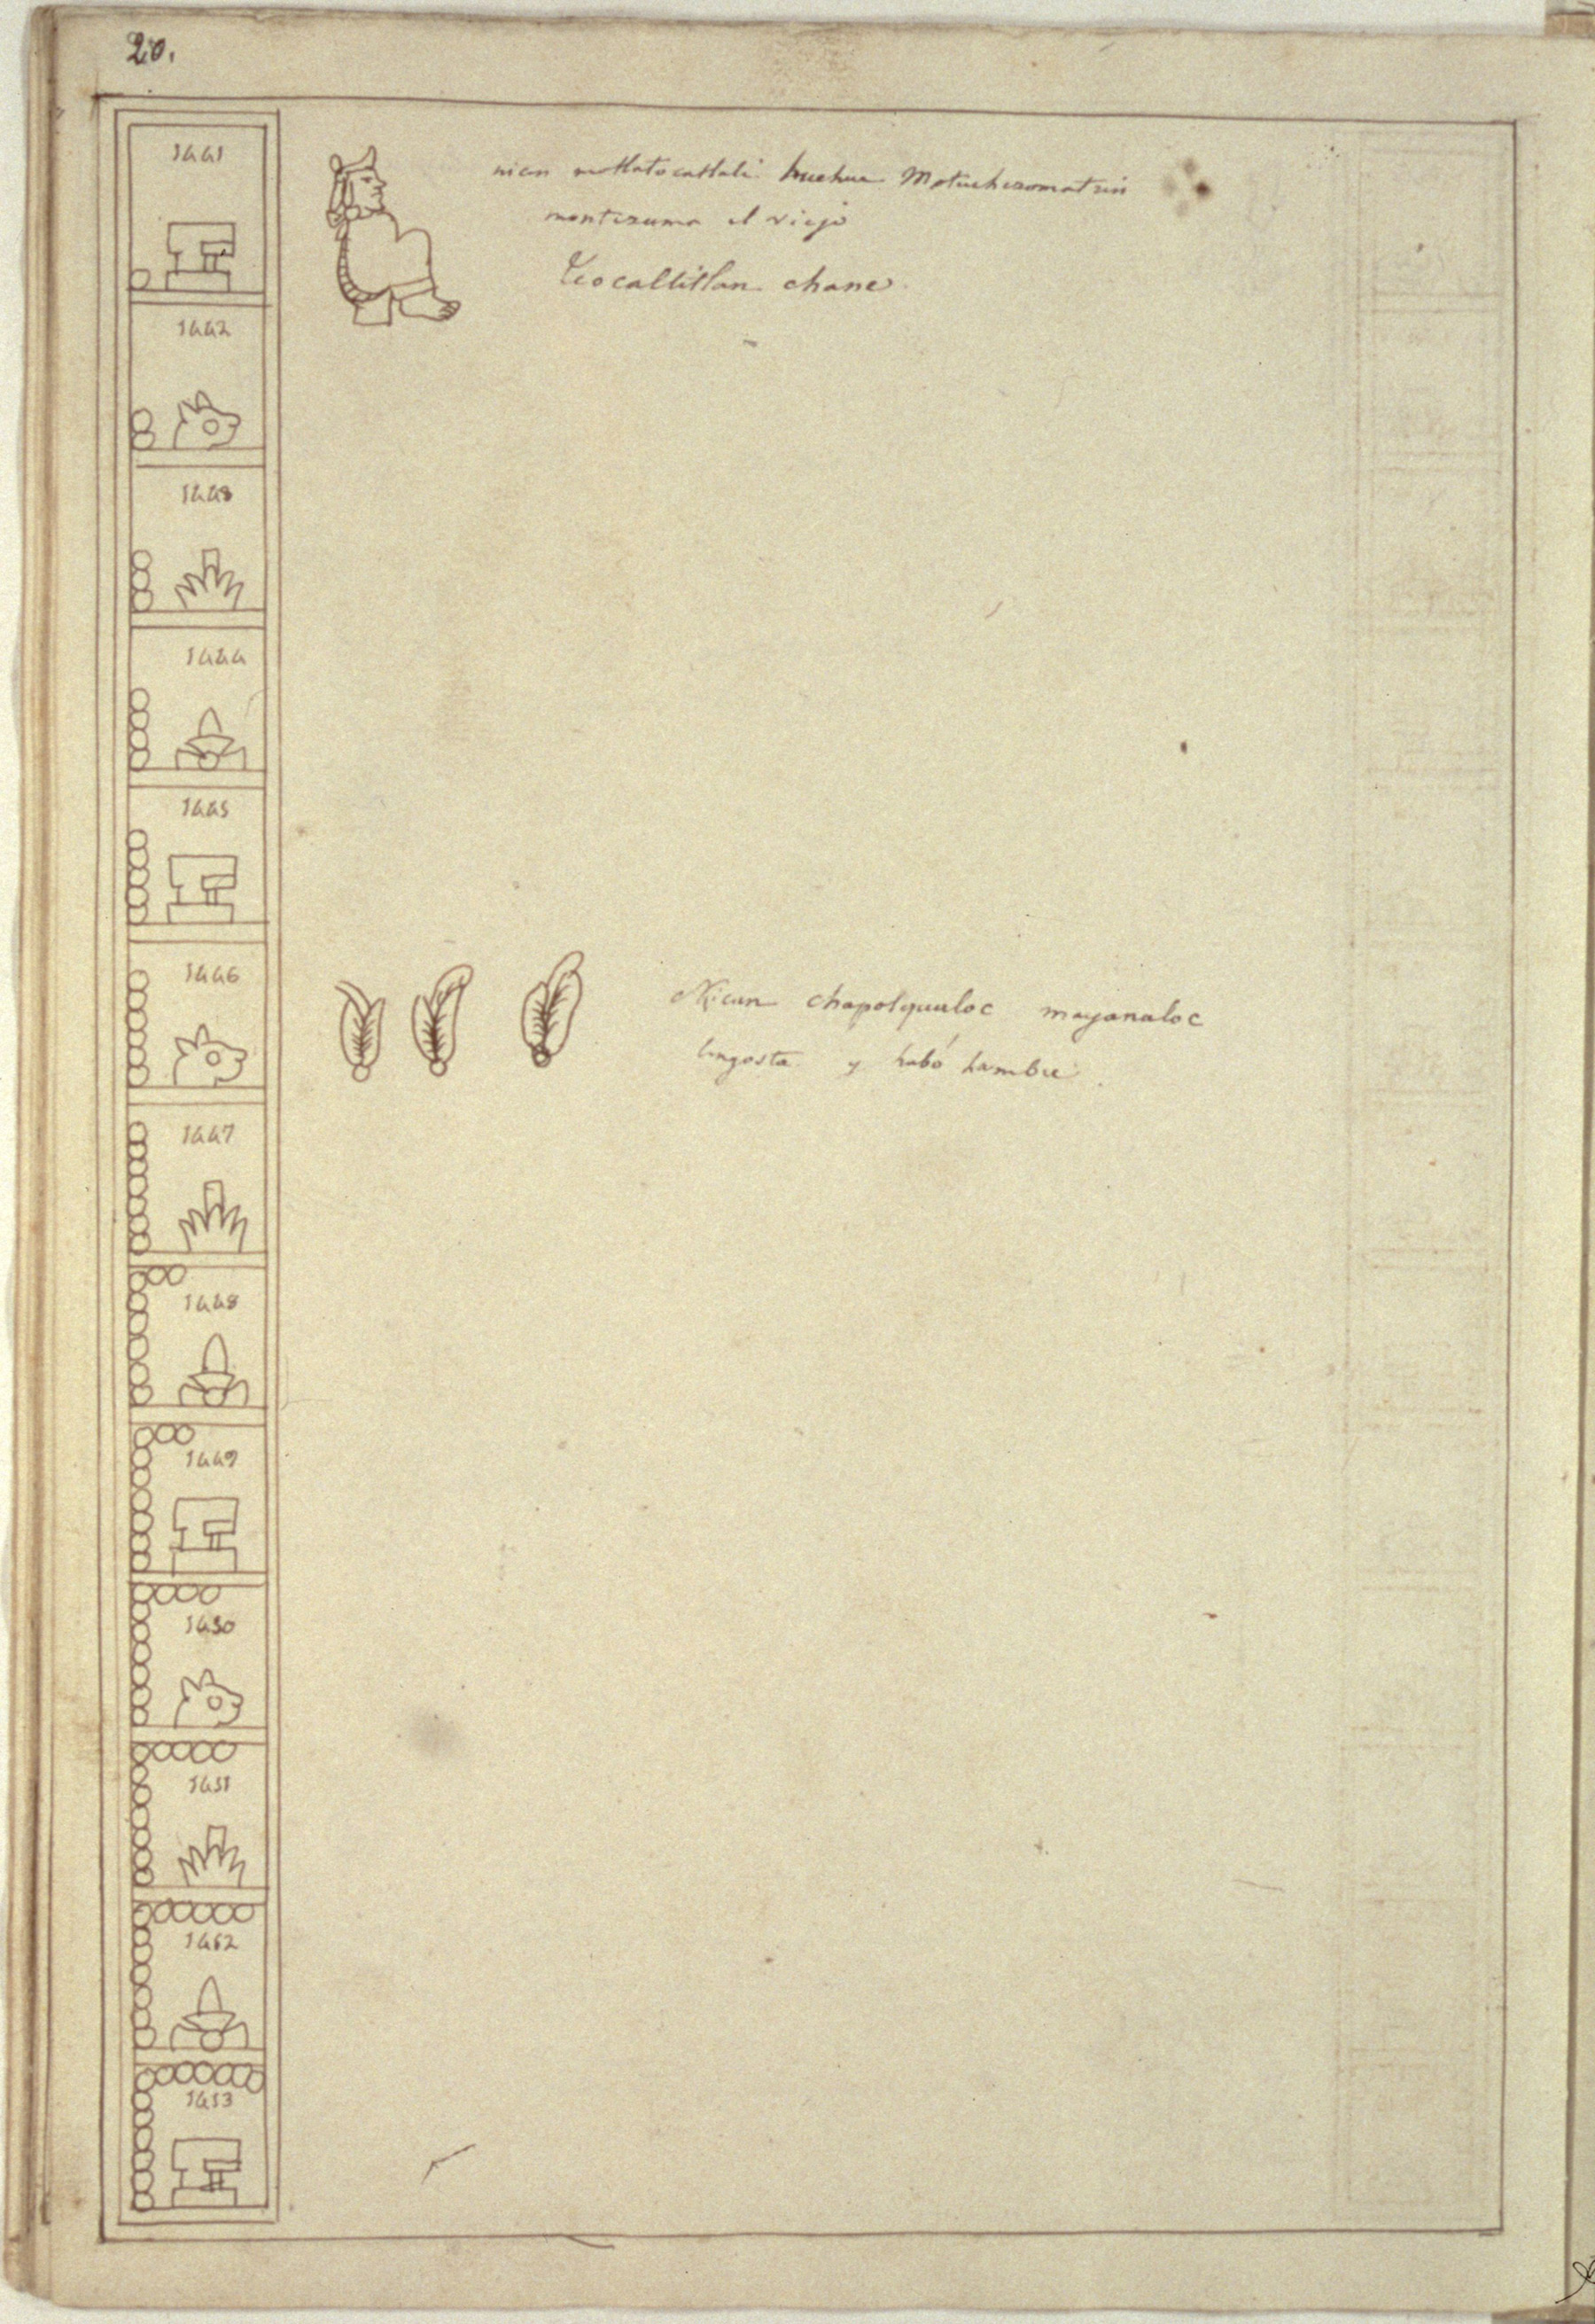 20.
1441
nican motlatocatlali huehue Motuchzomatzin
montezuma el viejo
Teocaltitlan chane.
1442
1443
1444
1445
1446
Nican chapolqualoc mayanaloc
langosta y hubó hambre.
1447
1448
1449
1450
1451
1452
1453